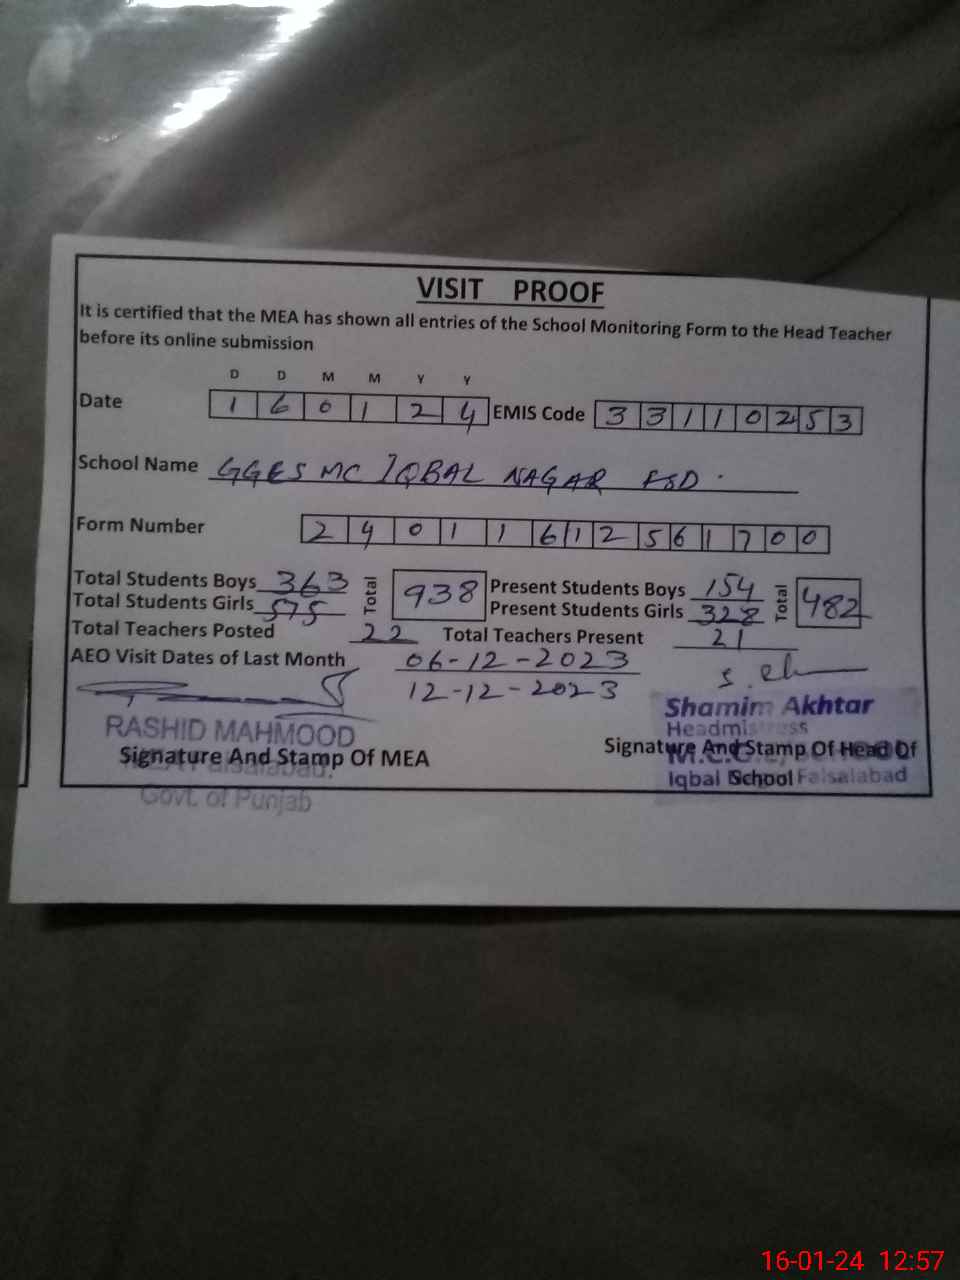 VISIT PROOF
It is certified that the MEA has shown all entries of the School Monitoring Form to the Head Teacher
before its online submission
D D M M Y Y
Date 1 6 0 1 2 4 EMIS Code 3 3 1 1 0 2 5 3
School Name GGES MC IQBAL NAGAR FSD.
Form Number 2 4 0 1 1 6 1 2 5 6 1 7 0 0
Total Students Boys 363 Total 938 Present Students Boys 154 Total 482
Total Students Girls 575 Present Students Girls 328
Total Teachers Posted 22 Total Teachers Present 21
AEO Visit Dates of Last Month 06-12-2023
12-12-2023
RASHID MAHMOOD
Signature And Stamp Of MEA
Faisalabad.
Govt. of Punjab
Shamim Akhtar
Headmistress
Signature And Stamp Of Head Of
School
Iqbal Faisalabad
16-01-24 12:57